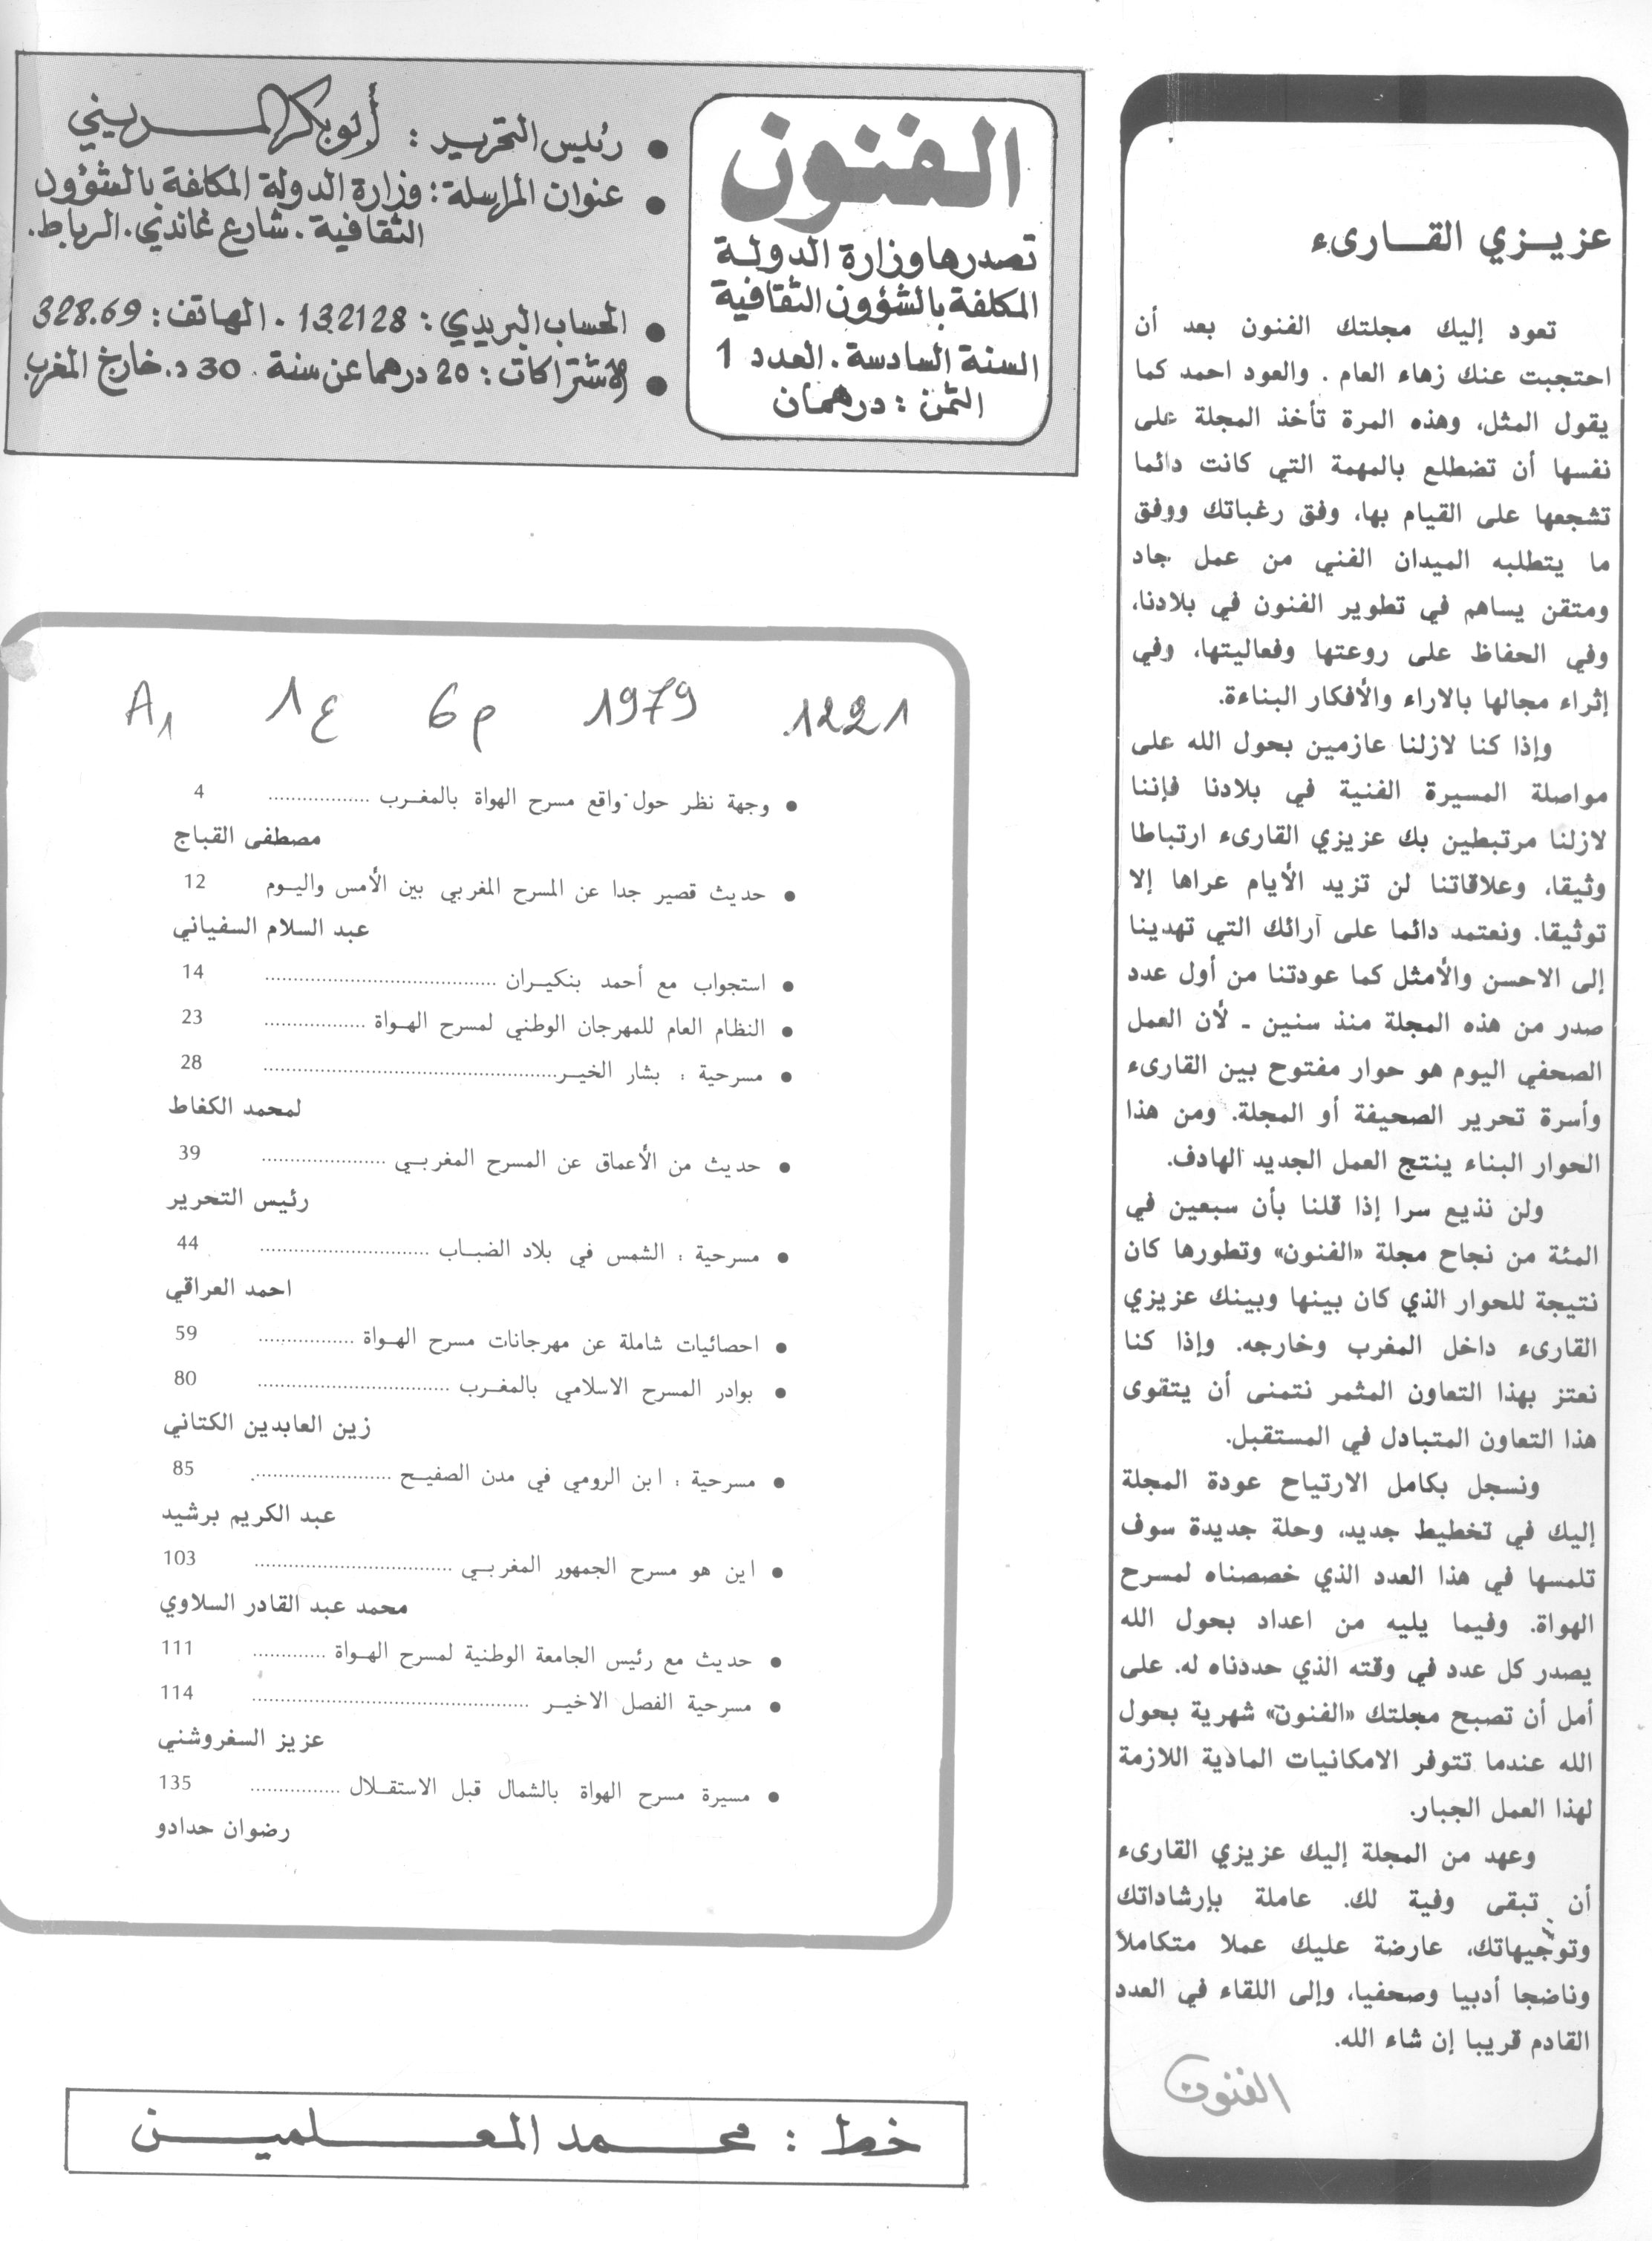 الفنون
تصدرها وزارة الدولة
المكلفة بالشؤون الثقافية
السنة السادسة . العدد 1
الثمن : درهمان
• رئيس التحرير : أبو بكر المريني
• عنوان المراسلة : وزارة الدولة المكلفة بالشؤون
الثقافية . شارع غاندي . الرباط .
• الحساب البريدي : 132128 . الهاتف : 328.69
• الاشتراكات : 20 درهما عن سنة . 30 د. خارج المغرب
عزيزي القارىء
تعود إليك مجلتك الفنون بعد أن
احتجبت عنك زهاء العام . والعود احمد كما
يقول المثل، وهذه المرة تأخذ المجلة على
نفسها أن تضطلع بالمهمة التي كانت دائما
تشجعها على القيام بها، وفق رغباتك ووفق
ما يتطلبه الميدان الفني من عمل جاد
ومتقن يساهم في تطوير الفنون في بلادنا،
وفي الحفاظ على روعتها وفعاليتها، وفي
إثراء مجالها بالاراء والأفكار البناءة.
وإذا كنا لازلنا عازمين بحول الله على
مواصلة المسيرة الفنية في بلادنا فإننا
لازلنا مرتبطين بك عزيزي القارىء ارتباطا
وثيقا، وعلاقاتنا لن تزيد الأيام عراها إلا
توثيقا. ونعتمد دائما على آرائك التي تهدينا
إلى الاحسن والأمثل كما عودتنا من أول عدد
صدر من هذه المجلة منذ سنين ـ لأن العمل
الصحفي اليوم هو حوار مفتوح بين القارىء
وأسرة تحرير الصحيفة أو المجلة. ومن هذا
الحوار البناء ينتج العمل الجديد الهادف.
ولن نذيع سرا إذا قلنا بأن سبعين في
المئة من نجاح مجلة «الفنون» وتطورها كان
نتيجة للحوار الذي كان بينها وبينك عزيزي
القارىء داخل المغرب وخارجه. وإذا كنا
نعتز بهذا التعاون المثمر نتمنى أن يتقوى
هذا التعاون المتبادل في المستقبل.
ونسجل بكامل الارتياح عودة المجلة
إليك في تخطيط جديد، وحلة جديدة سوف
تلمسها في هذا العدد الذي خصصناه لمسرح
الهواة. وفيما يليه من اعداد بحول الله
يصدر كل عدد في وقته الذي حددناه له. على
أمل أن تصبح مجلتك «الفنون» شهرية بحول
الله عندما تتوفر الامكانيات المادية اللازمة
لهذا العمل الجبار.
وعهد من المجلة إليك عزيزي القارىء
أن تبقى وفية لك. عاملة بإرشاداتك
وتوجيهاتك، عارضة عليك عملا متكاملا
وناضجا أدبيا وصحفيا، وإلى اللقاء في العدد
القادم قريبا إن شاء الله.
الفنون
A1 1ع 6م 1979 .1221
• وجهة نظر حول واقع مسرح الهواة بالمغرب .................. 4
مصطفى القباج
• حديث قصير جدا عن المسرح المغربي بين الأمس واليوم 12
عبد السلام السفياني
• استجواب مع أحمد بنكيران .................. 14
• النظام العام للمهرجان الوطني لمسرح الهواة .................. 23
• مسرحية : بشار الخير .................. 28
لمحمد الكغاط
• حديث من الأعماق عن المسرح المغربي .................. 39
رئيس التحرير
• مسرحية : الشمس في بلاد الضباب .................. 44
احمد العراقي
• احصائيات شاملة عن مهرجانات مسرح الهواة .................. 59
• بوادر المسرح الاسلامي بالمغرب .................. 80
زين العابدين الكتاني
• مسرحية : ابن الرومي في مدن الصفيح .................. 85
عبد الكريم برشيد
• اين هو مسرح الجمهور المغربي .................. 103
محمد عبد القادر السلاوي
• حديث مع رئيس الجامعة الوطنية لمسرح الهواة ............. 111
• مسرحية الفصل الاخير .................. 114
عزيز السغروشني
• مسيرة مسرح الهواة بالشمال قبل الاستقلال ................ 135
رضوان حدادو
خط : محمد المعلمين